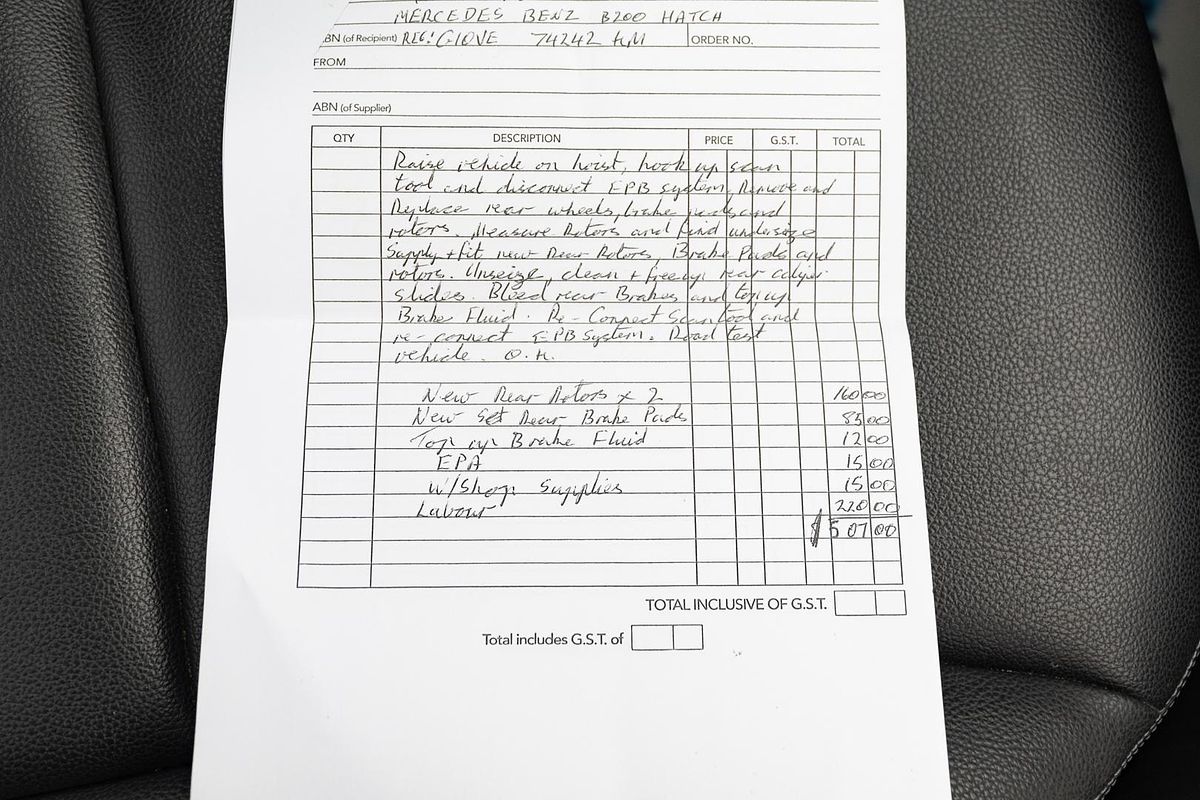 MERCEDES BENZ B200 HATCH
ABN (of Recipient) REG: GIOVE 74242 KM ORDER NO.
FROM
ABN (of Supplier)
QTY DESCRIPTION PRICE G.S.T. TOTAL
Raise vehicle on hoist, hook up scan
tool and disconnect EPB system, Remove and
Replace rear wheels, brake pads and
rotors. Measure Rotors and find undersize
Supply + fit new Rear Rotors, Brake Pads and
rotors. Unseize, clean + free up rear caliper
slides. Bleed rear Brakes and top up
Brake Fluid. Re-Connect Scan tool and
re-connect EPB System. Road test
vehicle. O.K.
New Rear Rotors x 2 160 00
New Set Rear Brake Pads 85 00
Top up Brake Fluid 12 00
EPA 15 00
W/Shop Supplies 15 00
Labour 220 00
$ 507 00
TOTAL INCLUSIVE OF G.S.T.
Total includes G.S.T. of